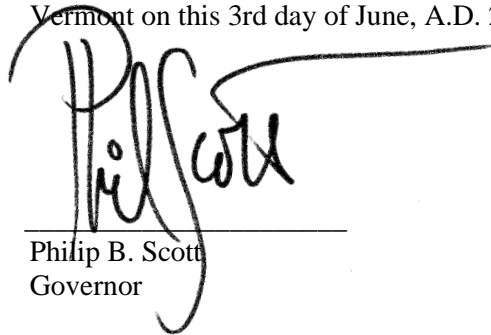 Vermont on this 3rd day of June, A.D. 2
Phil Scott
Philip B. Scott
Governor